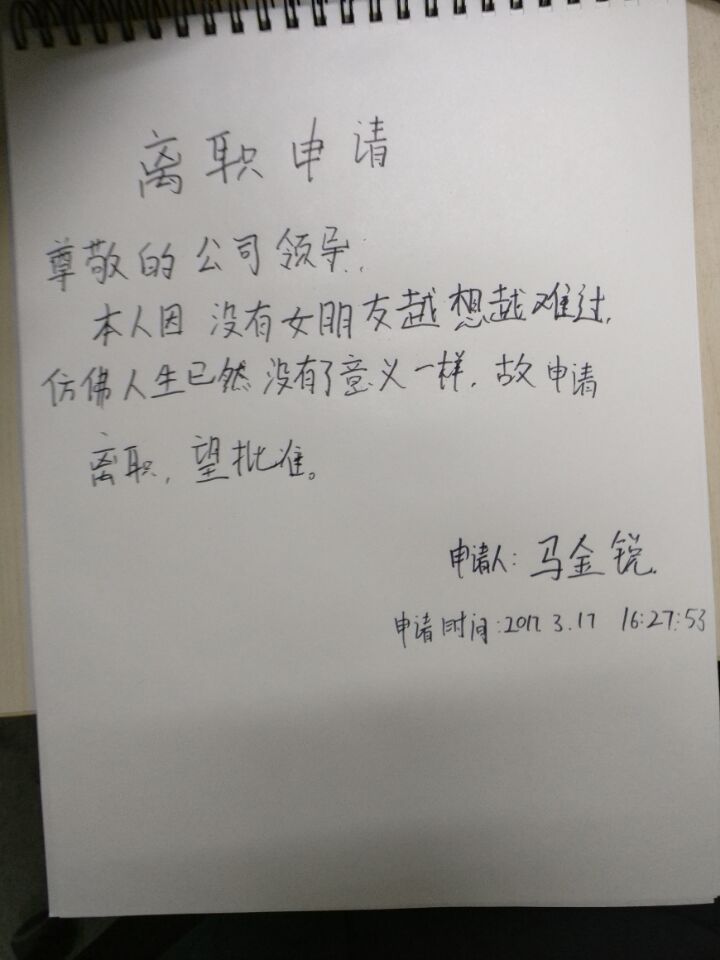 离职申请
尊敬的公司领导:
本人因没有女朋友越想越难过,
仿佛人生已然没有了意义一样,故申请
离职,望批准。
申请人:马金锐
申请时间:2017.3.17 16:27:53